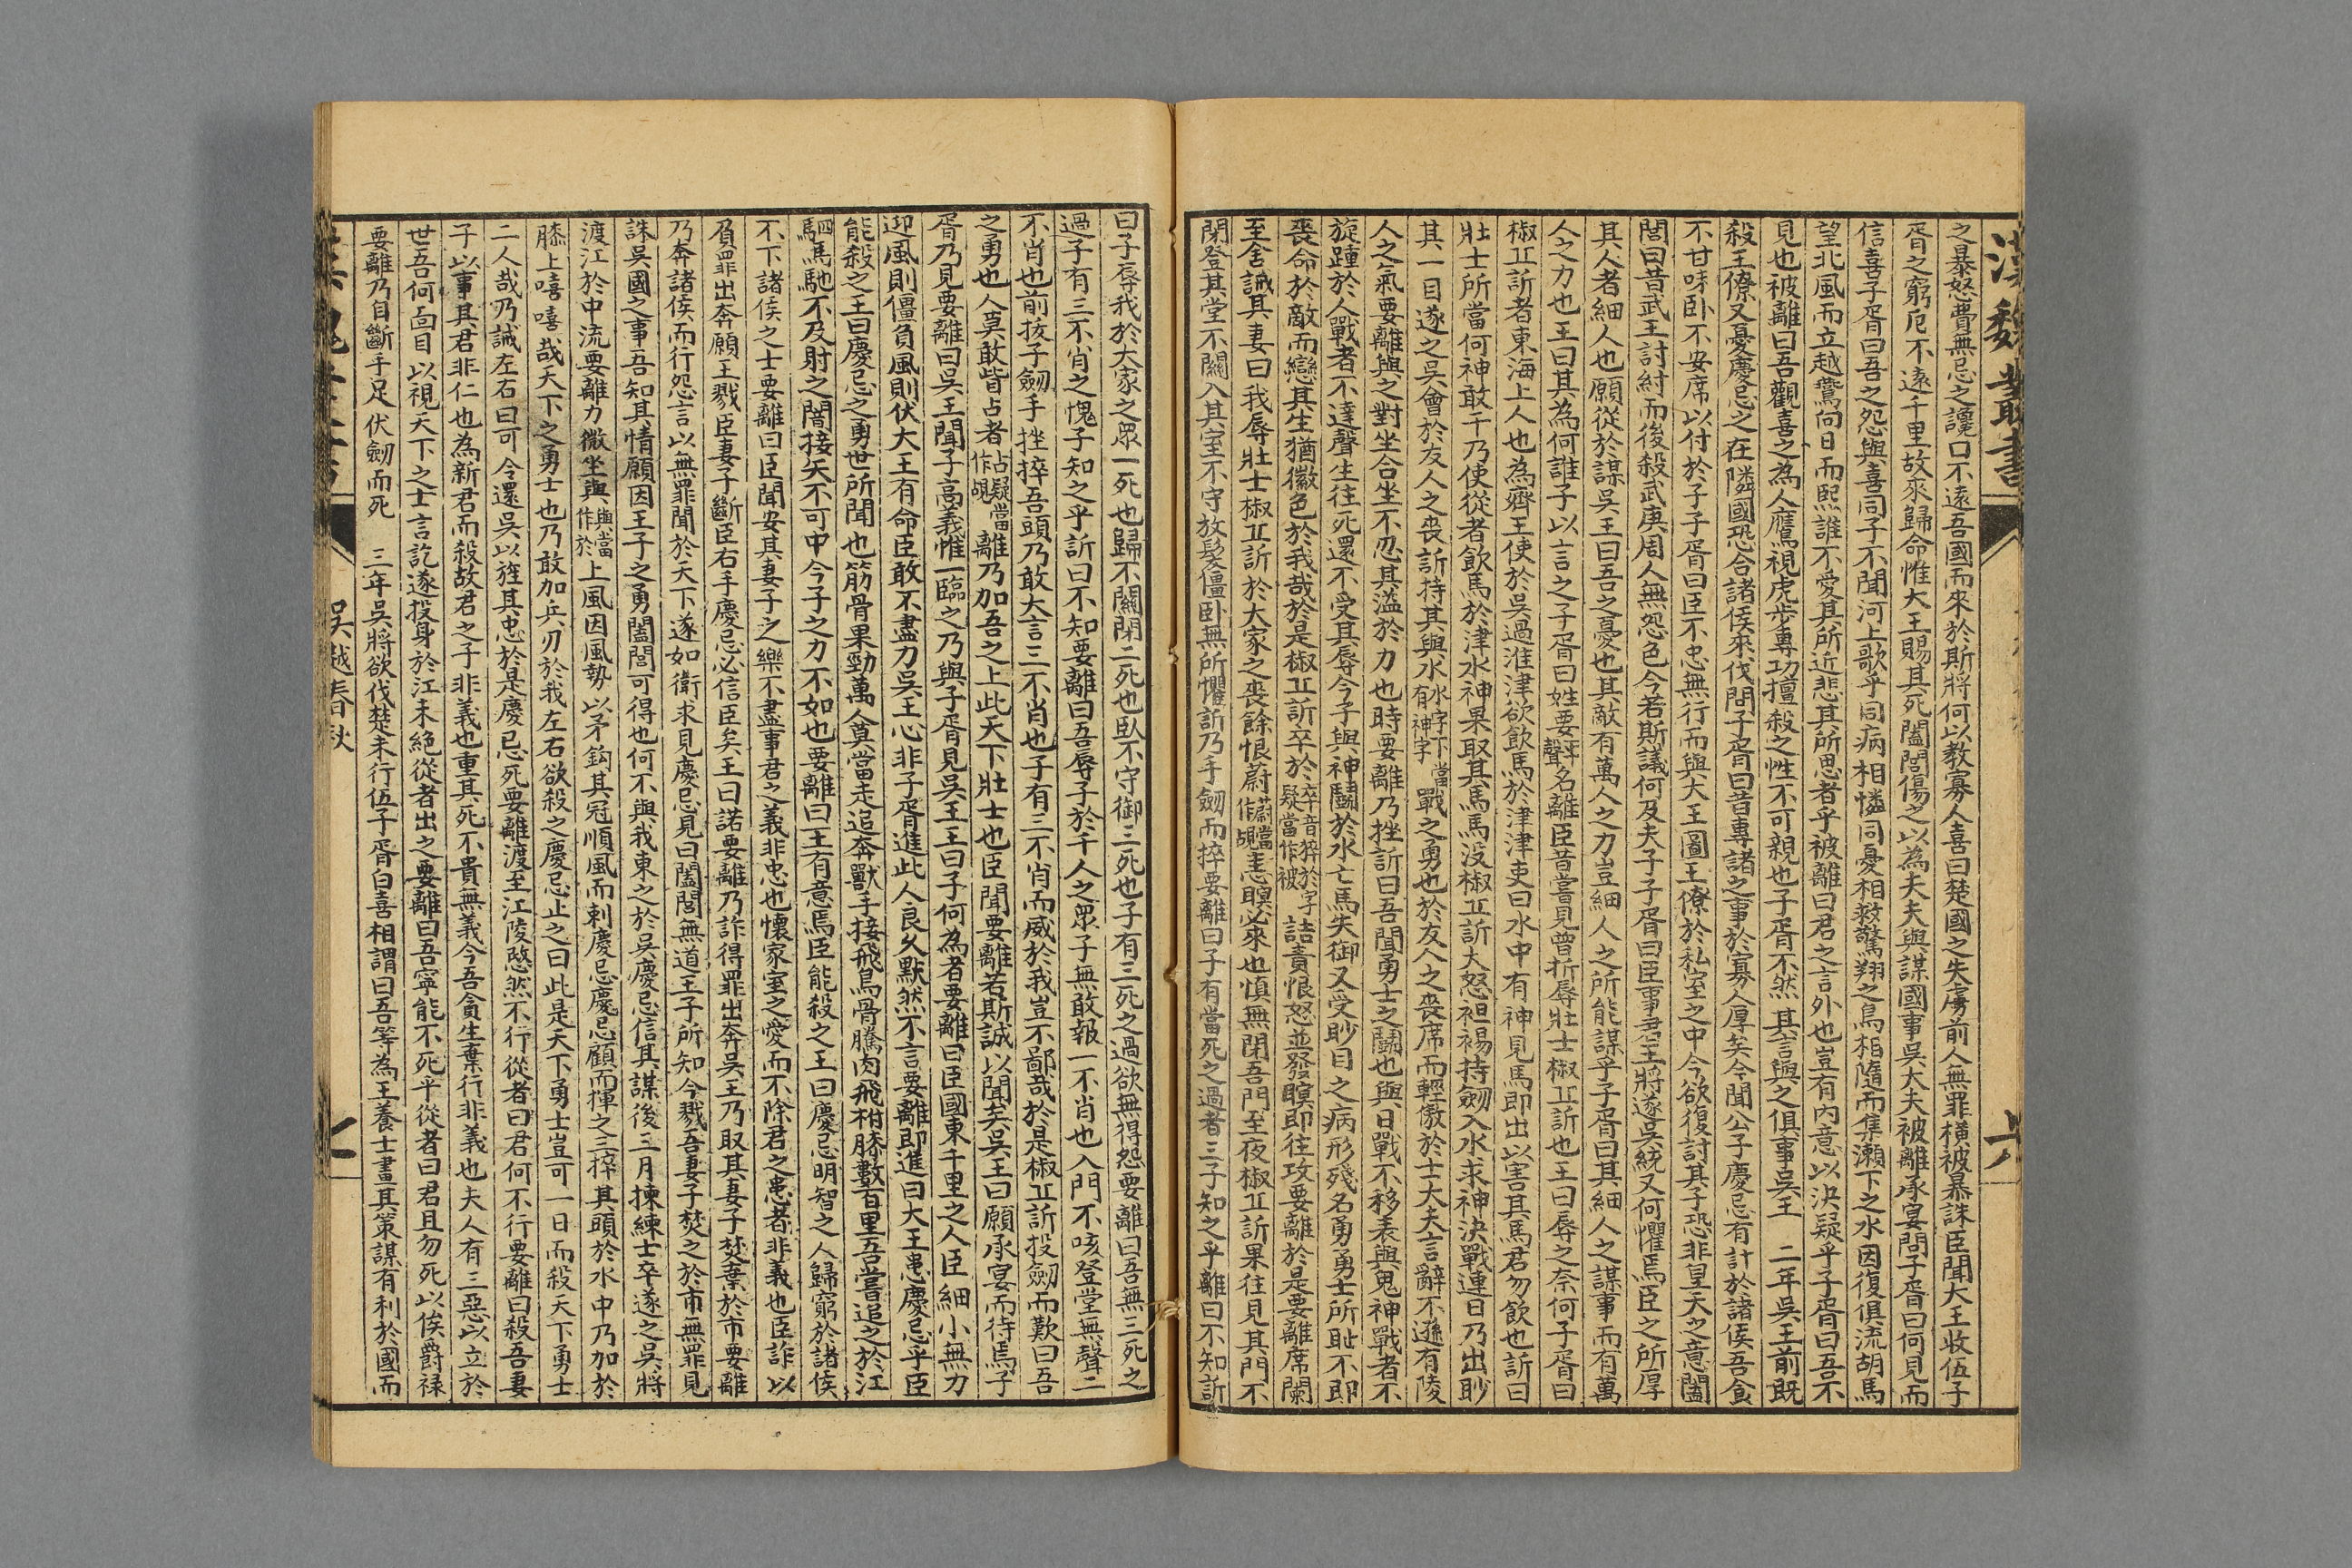 漢魏叢書
六
之暴怒費無忌之讒口不遠吾國而來於斯將何以教寡人喜曰楚國之失虜前人無罪橫被暴誅臣聞大王收伍子
胥之窮厄不遠千里故來歸命惟大王賜其死闔閭傷之以為大夫與謀國事吳大夫被離承宴問子胥曰何見而
信喜子胥曰吾之怨與喜同子不聞河上歌乎同病相憐同憂相救驚翔之鳥相隨而集瀨下之水因復俱流胡馬
望北風而立越鷰向日而熙誰不愛其所近悲其所思者乎被離曰君之言外也豈有內意以決疑乎子胥曰吾不
見也被離曰吾觀喜之為人鷹視虎步專功擅殺之性不可親也子胥不然其言與之俱事吳王　二年吳王前既
殺王僚又憂慶忌之在隣國恐合諸侯來伐問子胥曰昔專諸之事於寡人厚矣今聞公子慶忌有計於諸侯吾食
不甘味臥不安席以付於子子胥曰臣不忠無行而與大王圖王僚於私室之中今欲復討其子恐非皇天之意闔
閭曰昔武王討紂而後殺武庚周人無怨色今若斯議何及夫子子胥曰臣事君王將遂吳統又何懼焉臣之所厚
其人者細人也願從於謀吳王曰吾之憂也其敵有萬人之力豈細人之所能謀乎子胥曰其細人之謀事而有萬
人之力也王曰其為何誰子以言之子胥曰姓要平聲名離臣昔嘗見曾折辱壯士椒丘訢也王曰辱之奈何子胥曰
椒丘訢者東海上人也為齊王使於吳過淮津欲飲馬於津津吏曰水中有神見馬即出以害其馬君勿飲也訢曰
壯士所當何神敢干乃使從者飲馬於津水神果取其馬馬沒椒丘訢大怒袒裼持劒入水求神決戰連日乃出眇
其一目遂之吳會於友人之喪訢持其與水水字下當有神字戰之勇也於友人之喪席而輕傲於士大夫言辭不遜有陵
人之氣要離與之對坐合坐不忍其溢於力也時要離乃挫訢曰吾聞勇士之鬭也與日戰不移表與鬼神戰者不
旋踵於人戰者不達聲生往死還不受其辱今子與神鬭於水亡馬失御又受眇目之病形殘名勇勇士所恥不即
喪命於敵而戀其生猶儌色於我哉於是椒丘訢卒於卒音猝於字疑當作被詰責恨怒並發瞑即往攻要離於是要離席闌
至舍誡其妻曰我辱壯士椒丘訢於大家之喪餘恨蔚蔚當作覬恚瞑必來也慎無閉吾門至夜椒丘訢果往見其門不
閉登其堂不關入其室不守放髮僵臥無所懼訢乃手劒而捽要離曰子有當死之過者三子知之乎離曰不知訢
曰子辱我於大家之眾一死也歸不關閉二死也臥不守御三死也子有三死之過欲無得怨要離曰吾無三死之
過子有三不肖之愧子知之乎訢曰不知要離曰吾辱子於千人之眾子無敢報一不肖也入門不咳登堂無聲二
不肖也前拔子劒手挫捽吾頭乃敢大言三不肖也子有三不肖而威於我豈不鄙哉於是椒丘訢投劒而歎曰吾
之勇也人莫敢眥占者占疑當作覘離乃加吾之上此天下壯士也臣聞要離若斯誠以聞矣吳王曰願承宴而待焉子
胥乃見要離曰吳王聞子高義惟一臨之乃與子胥見吳王王曰子何為者要離曰臣國東千里之人臣細小無力
迎風則僵負風則伏大王有命臣敢不盡力吳王心非子胥進此人良久默然不言要離即進曰大王患慶忌乎臣
能殺之王曰慶忌之勇世所聞也筋骨果勁萬人莫當走追奔獸手接飛鳥骨騰肉飛柎膝數百里吾嘗追之於江
駟馬馳不及射之闇接矢不可中今子之力不如也要離曰王有意焉臣能殺之王曰慶忌明智之人歸窮於諸侯
不下諸侯之士要離曰臣聞安其妻子之樂不盡事君之義非忠也懷家室之愛而不除君之患者非義也臣詐以
負罪出奔願王戮臣妻子斷臣右手慶忌必信臣矣王曰諾要離乃詐得罪出奔吳王乃取其妻子焚棄於市要離
乃奔諸侯而行怨言以無罪聞於天下遂如衛求見慶忌見曰闔閭無道王子所知今戮吾妻子焚之於市無罪見
誅吳國之事吾知其情願因王子之勇闔閭可得也何不與我東之於吳慶忌信其謀後三月揀練士卒遂之吳將
渡江於中流要離力微坐與與當作於上風因風勢以矛鈎其冠順風而刺慶忌慶忌顧而揮之三捽其頭於水中乃加於
膝上嘻嘻哉天下之勇士也乃敢加兵刃於我左右欲殺之慶忌止之曰此是天下勇士豈可一日而殺天下勇士
二人哉乃誡左右曰可令還吳以旌其忠於是慶忌死要離渡至江陵愍然不行從者曰君何不行要離曰殺吾妻
子以事其君非仁也為新君而殺故君之子非義也重其死不貴無義今吾貪生棄行非義也夫人有三惡以立於
世吾何面目以視天下之士言訖遂投身於江未絕從者出之要離曰吾寧能不死乎從者曰君且勿死以俟爵祿
要離乃自斷手足伏劒而死　三年吳將欲伐楚未行伍子胥白喜相謂曰吾等為王養士畫其策謀有利於國而
吳越春秋
七